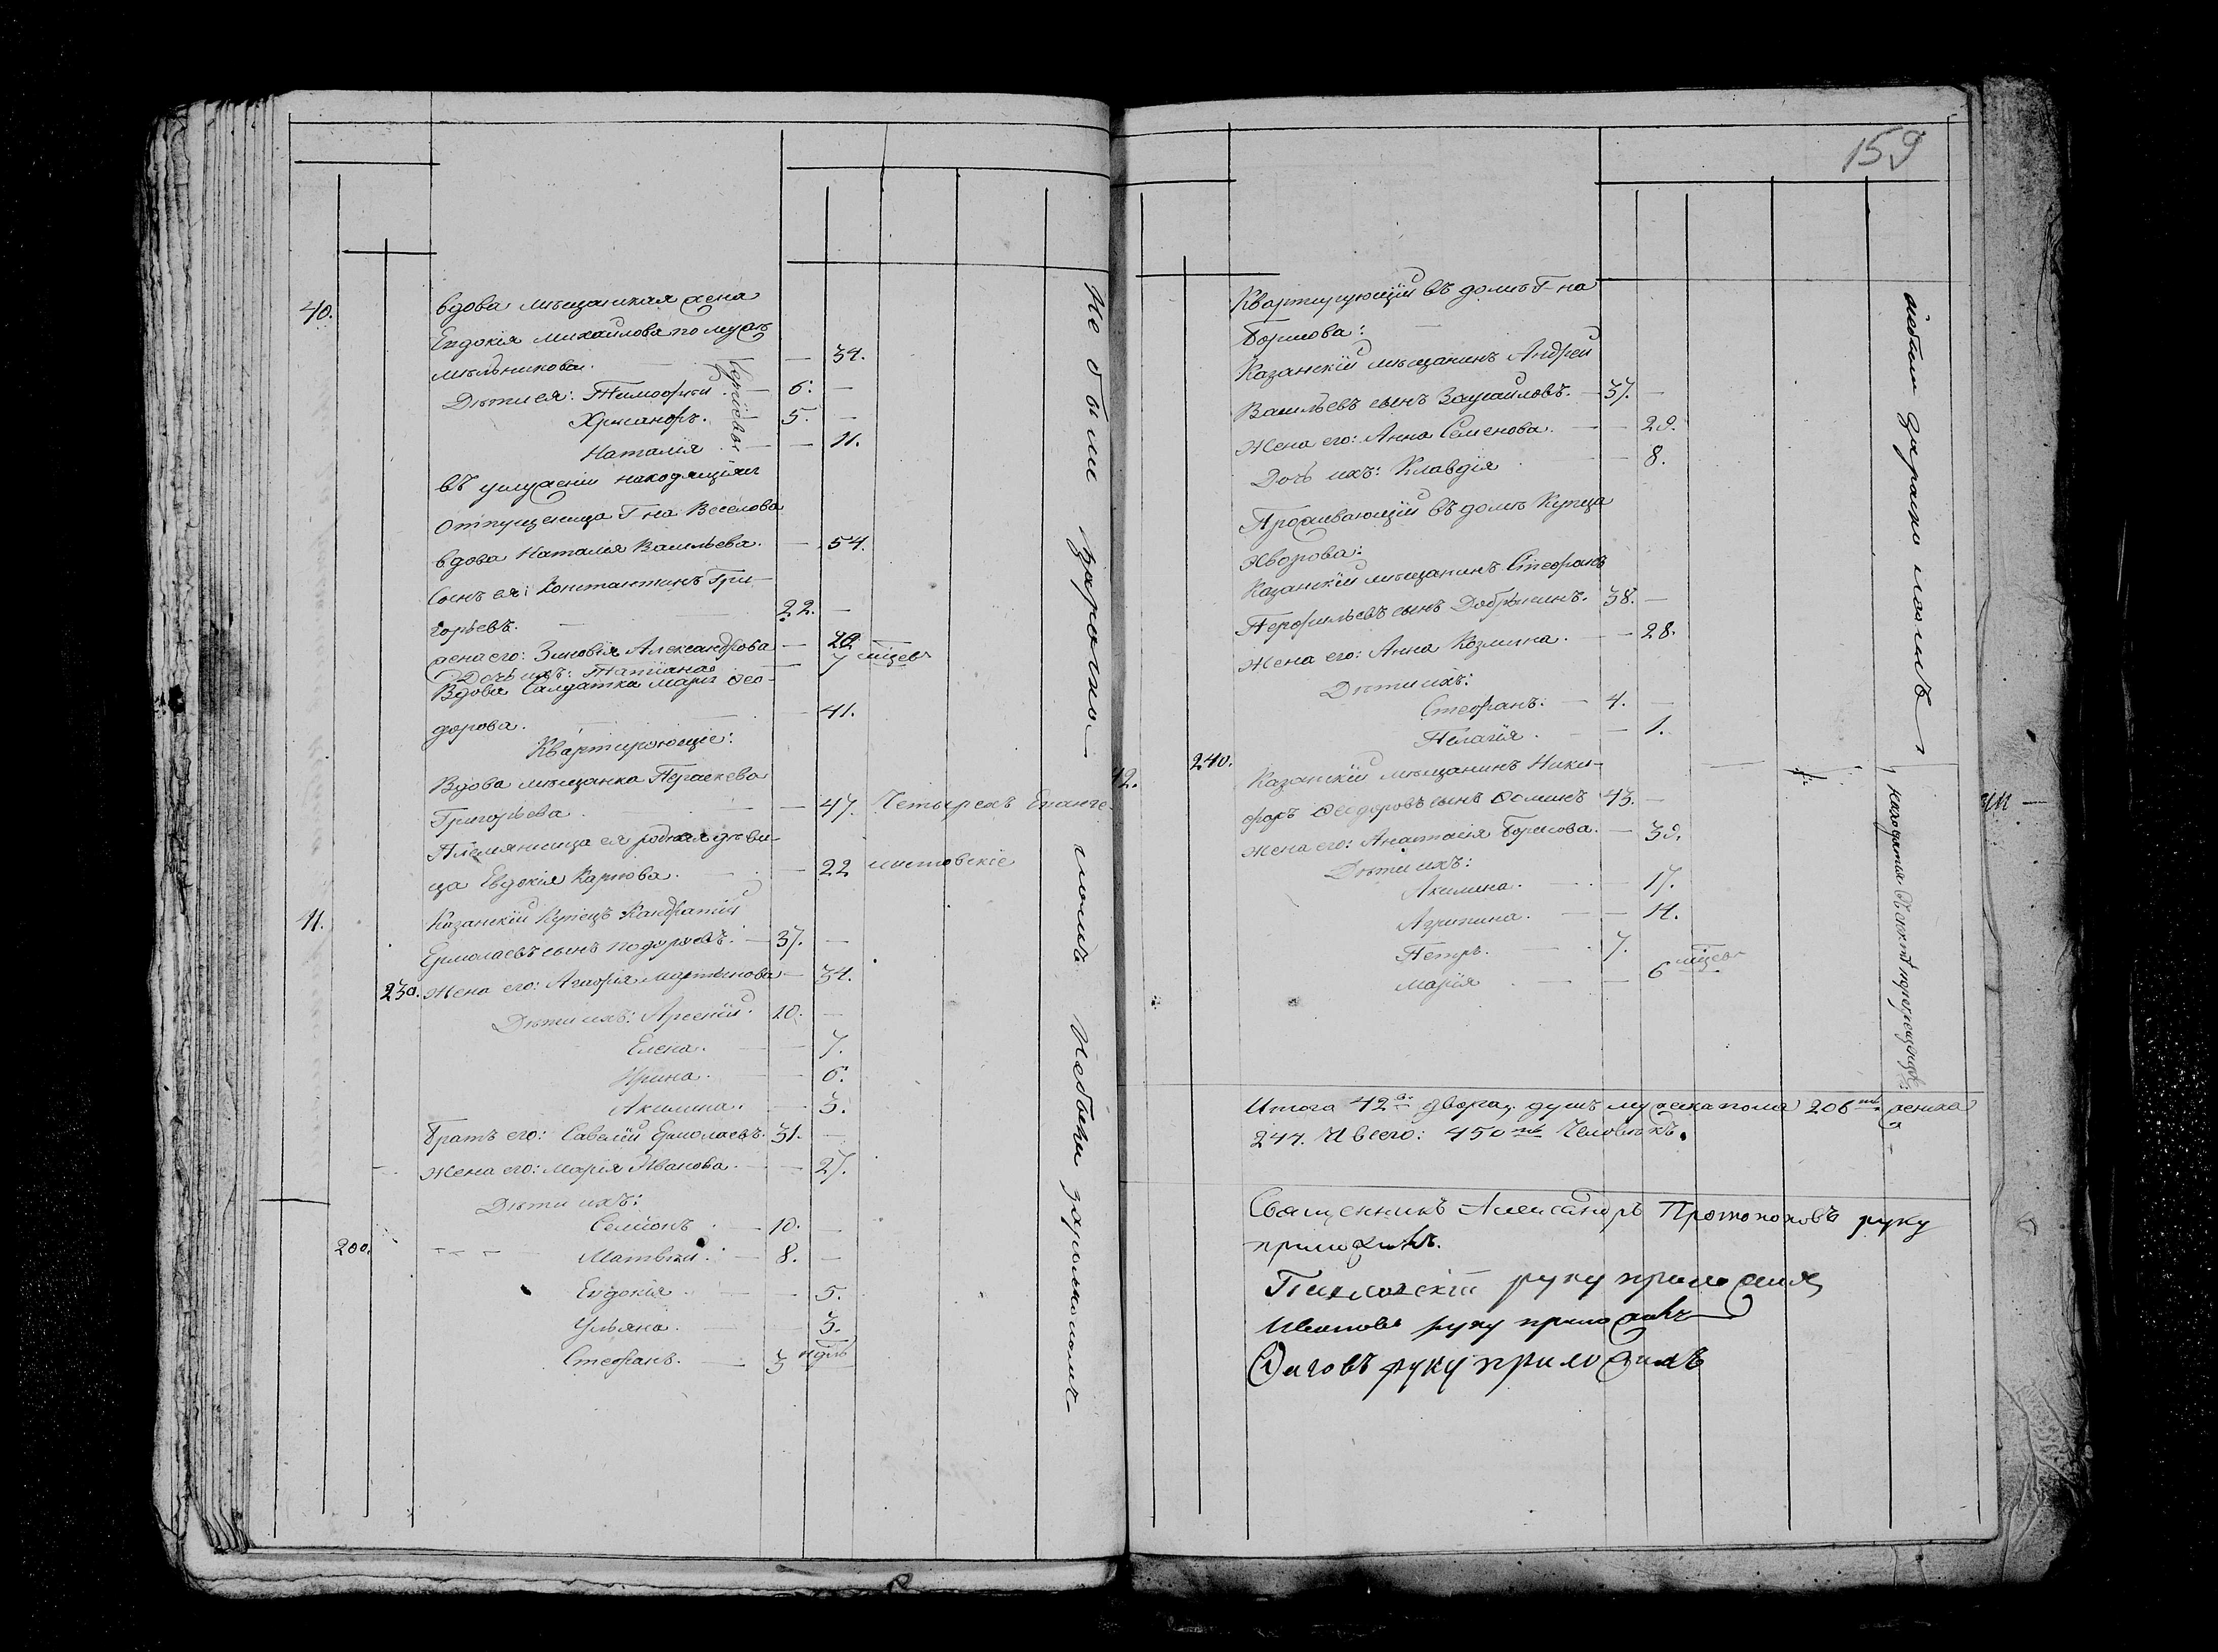 40.
вдова мѣщанская жена
Евдокія Михайлова по мужѣ
мѣльникова. — 34.
Дѣти ея: Тимофей — 6. —
Хрисанфъ. 5. —
Наталія — 11.
въ услуженіи находящіяся
Отпущеница Г-на Веселова
вдова Наталія Васильева. — 54.
Сынъ ея: Константинъ Гри-
горьевъ. — 22. —
жена его: Зиновія Александрова —
Дочь ихъ: Татіана — 7 мѣсев
Вдова Салдатка Марія Ѳео-
дорова. — 41.
Квартирующіе:
Вдова мѣщанка Параскева
Григорьева — 47. Четырехъ Еванге-
Племянница ея родная дѣви-
ца Евдокія Карпова. — 22 листовскіе
41.
Казанскій Купецъ Кандратій
Ермолаевъ сынъ — 37. —
230. Жена его: Агафія Мартынова — 34.
Дѣти ихъ: Арсеній. 10. —
Елена. — 7.
Ирина. — 6.
Акилина. — 3.
Братъ его: Савелій Ермолаевъ. 31. —
Жена его: Марія Иванова. — 27.
Дѣти ихъ:
Семіонъ — 10. —
200. Матвѣй. — 8. —
Евдокія — 5.
Ульяна. — 3.
Стефанъ. — 3 недль
Не были
Не были
159
Квартирующій въ домѣ Г-на
Борисова:
Казанскій мѣщанинъ Андрей
Васильевъ сынъ — 37. —
Жена его: Анна Семенова. — 29.
Дочь ихъ: Клавдія — 8.
Проживающій въ домѣ Купца
Хворова:
Казанскій мѣщанинъ Стефанъ
сынъ Добрынинъ. 38. —
Жена его: Анна Козмина. — 28.
Дѣти ихъ:
Стефанъ: — 4. —
Пелагія. — 1.
42. 240. Казанскій мѣщанинъ Ники-
форъ Ѳеодоровъ сынъ Ѳоминъ 43. —
Жена его: Анастасія Борисова. — 39.
Дѣти ихъ:
Акилина. — 17.
Агрипина. — 14.
Петръ. — 7.
Марія — 6 мѣсев
небыли
находятся въ
Итого 42 двора, душъ мужеска пола 206 женска
244. И всего: 450 Человѣкъ.
Священникъ Александръ руку
приложилъ.
руку приложилъ
Ивановъ руку приложилъ
руку приложилъ